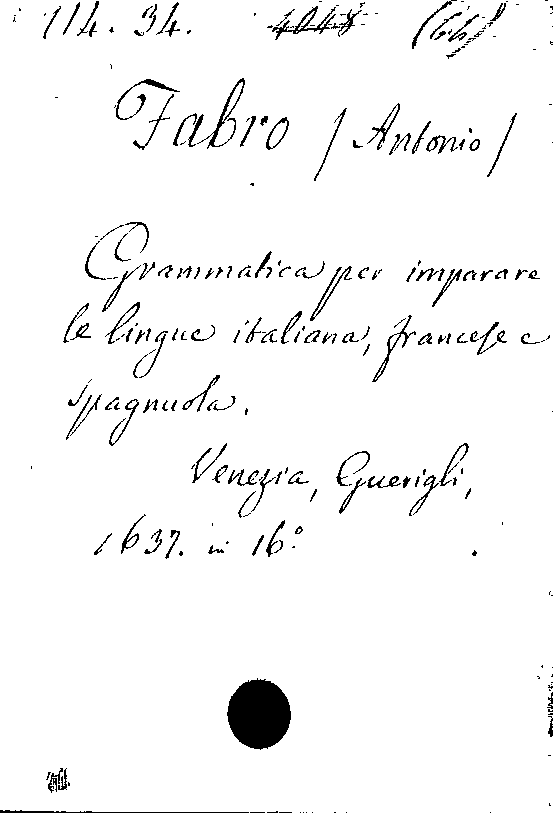 114. 34. 4048 (66)
Fabro / Antonio /
Grammatica per imparare
le lingue italiana, francese e
spagnuola.
Venezia, Guerigli,
1637. in 16°.